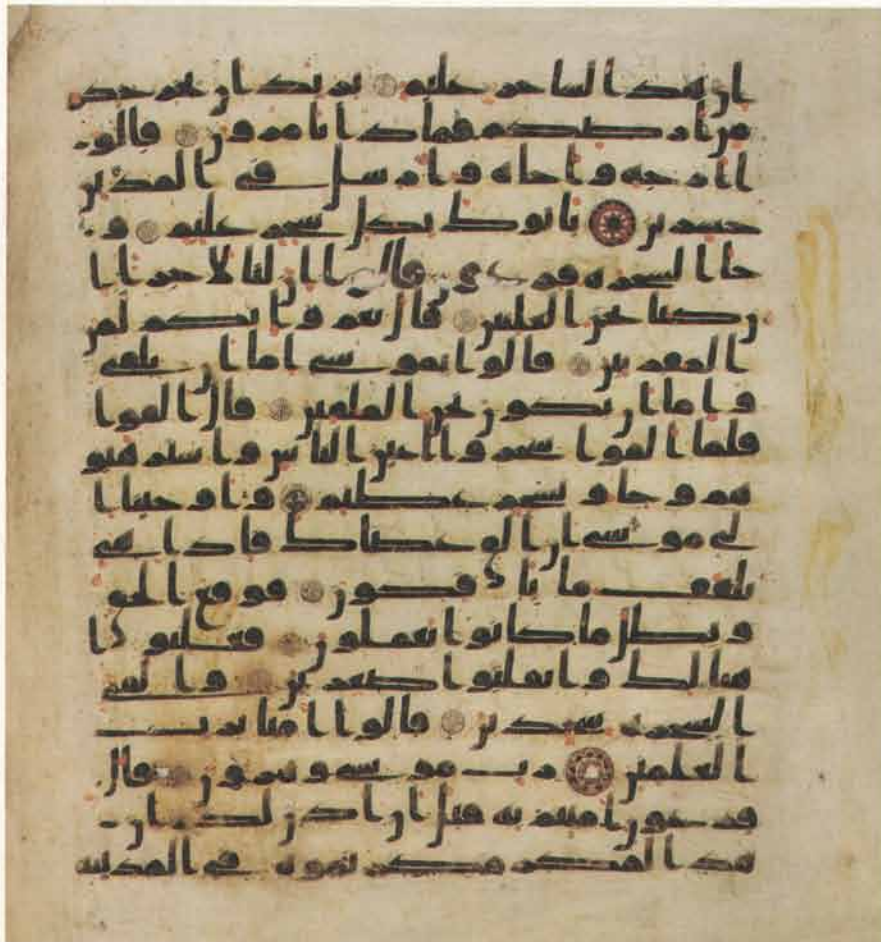 ان هذا لساحر عليم يريد ان يخرجكم
من ارضكم فماذا تامرون قالو
ا ارجه واخاه وارسل في المدين
حشرين ياتوك بكل سحر عليم و
جا السحره فرعون قالوا ان لنا لاجرا ا
ن كنا نحن الغلبين قال نعم وانكم لمن
المقربين قالوا يموسى اما ان تلقى
واما ان نكون نحن الملقين قال القوا
فلما القوا سحروا اعين الناس واسترهبو
هم وجاو بسحر عظيم واوحينا ا
لى موسى ان الق عصاك فاذا هى
تلقف ما يافكون فوقع الحق
وبطل ما كانوا يعملون فغلبوا
هنالك وانقلبوا صغرين والقى
السحره سجدين قالوا امنا برب
العلمين رب موسى وهرون قال
فرعون امنتم به قبل ان اذن لكم ان
هذا لمكر مكرتموه فى المدينه